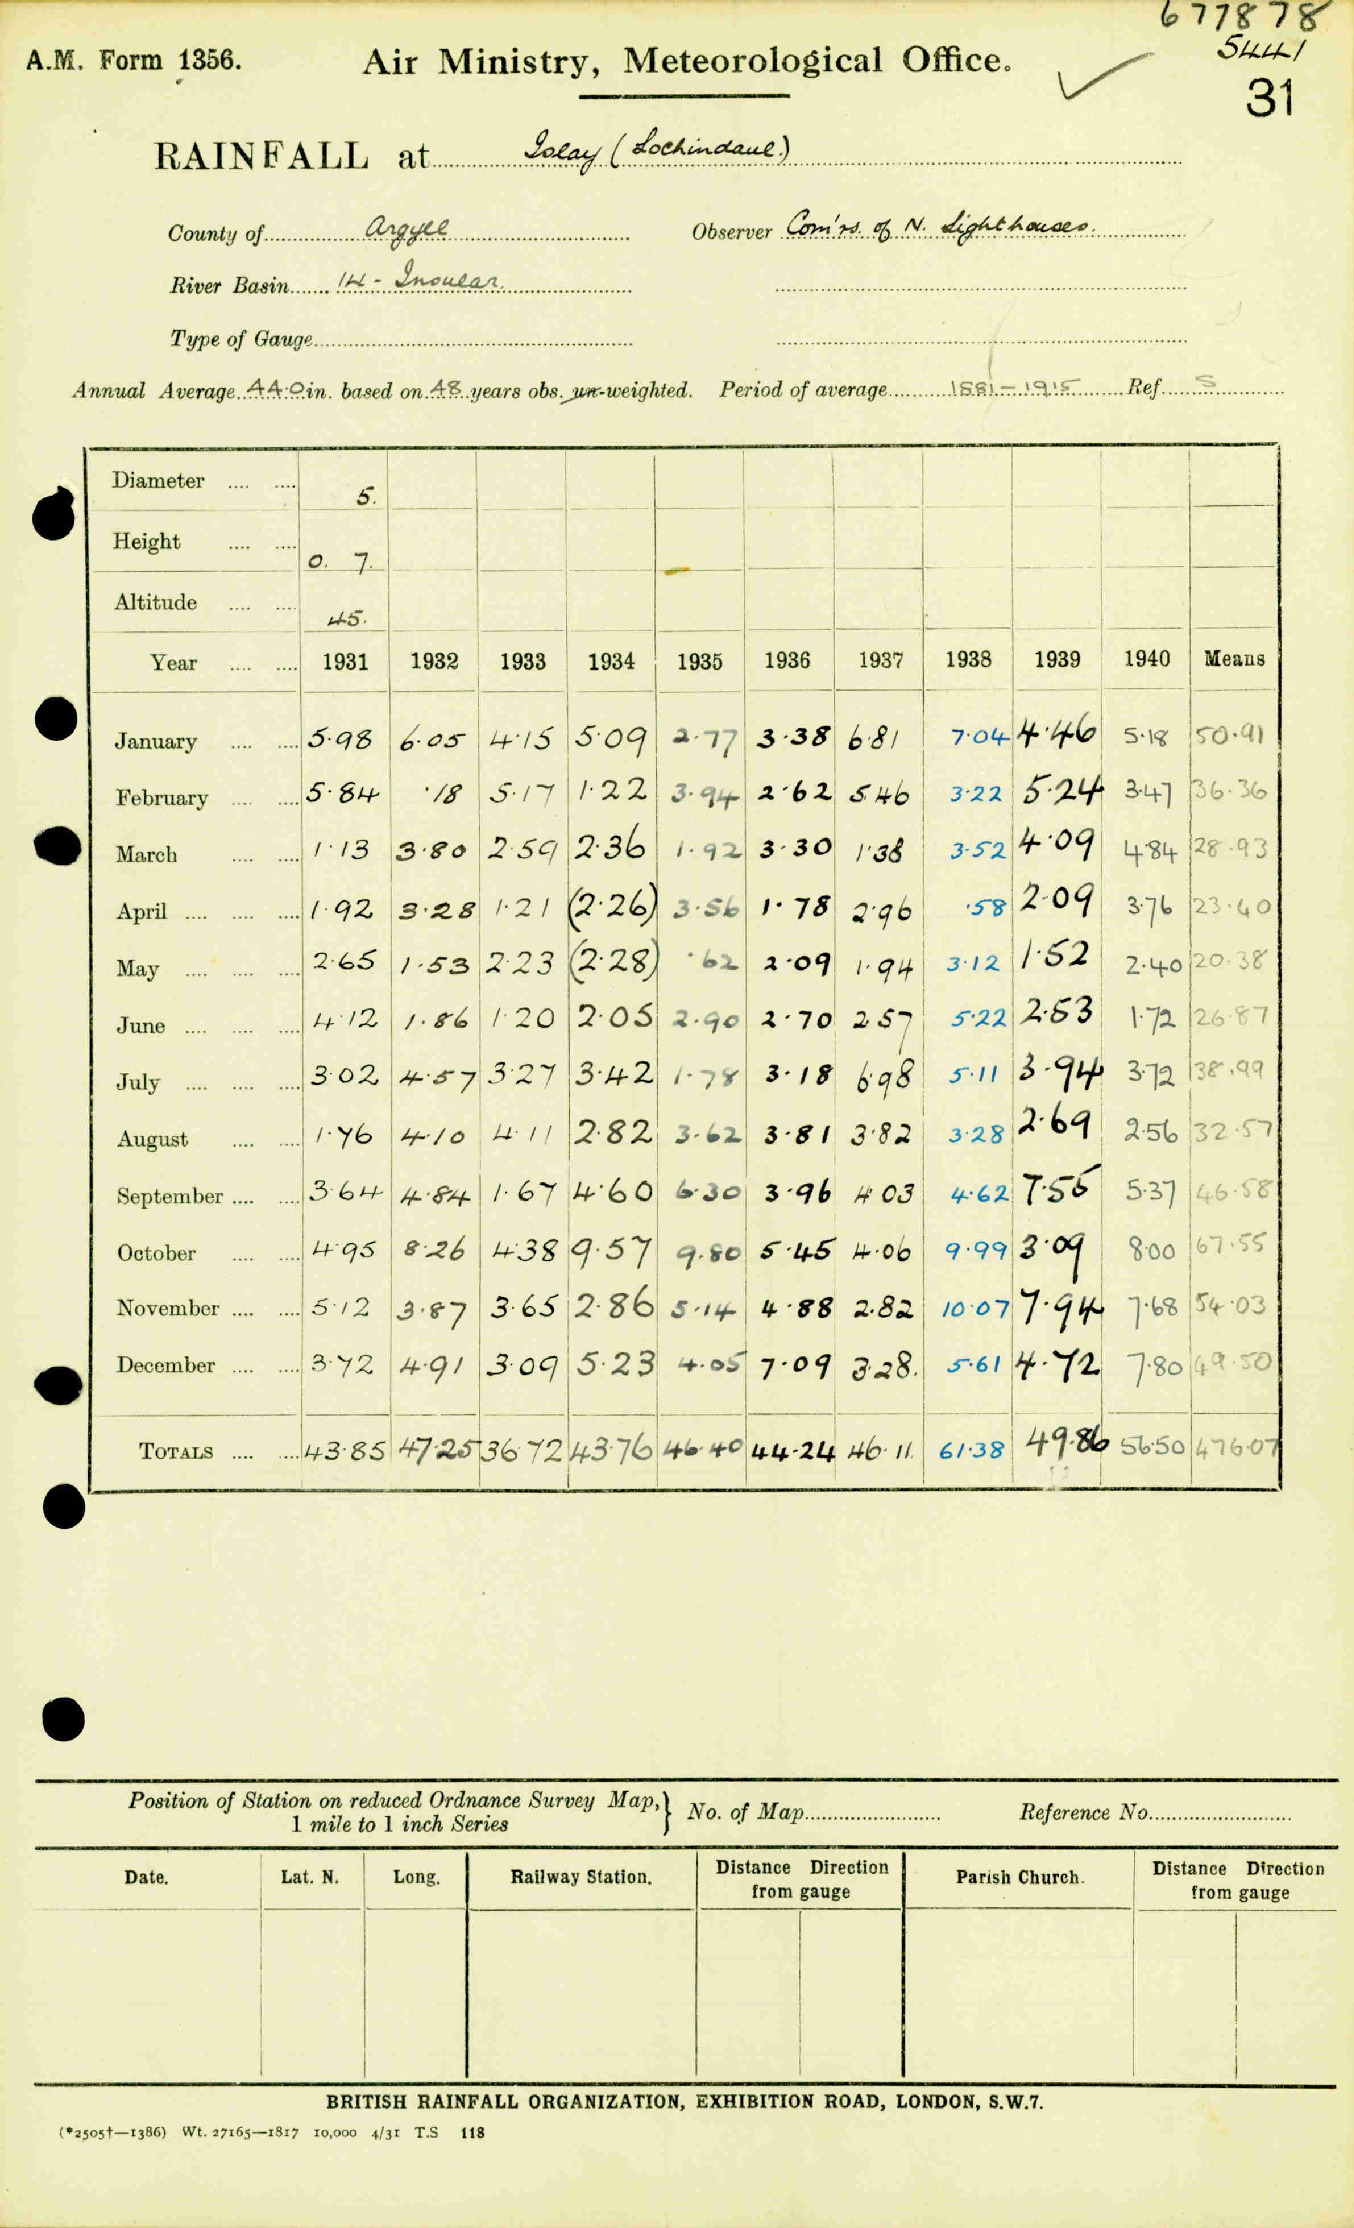 677878
A.M. Form 1356. Air Ministry, Meteorological Office. 5441
31
RAINFALL at Islay (Lochindaul.)
County of Argyll Observer Com'rs. of N. Lighthouses.
River Basin 14 - Insular.
Type of Gauge
Annual Average 44.0 in. based on 48 years obs. un-weighted. Period of average 1881-1915 Ref. S
Diameter 5.
Height 0. 7.
Altitude 45.
Year 1931 1932 1933 1934 1935 1936 1937 1938 1939 1940 Means
January 5.98 6.05 4.15 5.09 2.77 3.38 6.81 7.04 4.46 5.18 50.91
February 5.84 .18 5.17 1.22 3.94 2.62 5.46 3.22 5.24 3.47 36.36
March 1.13 3.80 2.59 2.36 1.92 3.30 1.38 3.52 4.09 4.84 28.93
April 1.92 3.28 1.21 (2.26) 3.56 1.78 2.96 .58 2.09 3.76 23.40
May 2.65 1.53 2.23 (2.28) .62 2.09 1.94 3.12 1.52 2.40 20.38
June 4.12 1.86 1.20 2.05 2.90 2.70 2.57 5.22 2.53 1.72 26.87
July 3.02 4.57 3.27 3.42 1.78 3.18 6.98 5.11 3.94 3.72 38.99
August 1.76 4.10 4.11 2.82 3.62 3.81 3.82 3.28 2.69 2.56 32.57
September 3.64 4.84 1.67 4.60 6.30 3.96 4.03 4.62 7.55 5.37 46.58
October 4.95 8.26 4.38 9.57 9.80 5.45 4.06 9.99 3.09 8.00 67.55
November 5.12 3.87 3.65 2.86 5.14 4.88 2.82 10.07 7.94 7.68 54.03
December 3.72 4.91 3.09 5.23 4.05 7.09 3.28. 5.61 4.72 7.80 49.50
TOTALS 43.85 47.25 36.72 43.76 46.40 44.24 46.11. 61.38 49.86 56.50 476.07
Position of Station on reduced Ordnance Survey Map, } No. of Map Reference No.
1 mile to 1 inch Series
Date. Lat. N. Long. Railway Station. Distance Direction from gauge Parish Church. Distance Direction from gauge
BRITISH RAINFALL ORGANIZATION, EXHIBITION ROAD, LONDON, S.W.7.
(*2505†—1386) Wt. 27165—1817 10,000 4/31 T.S 118